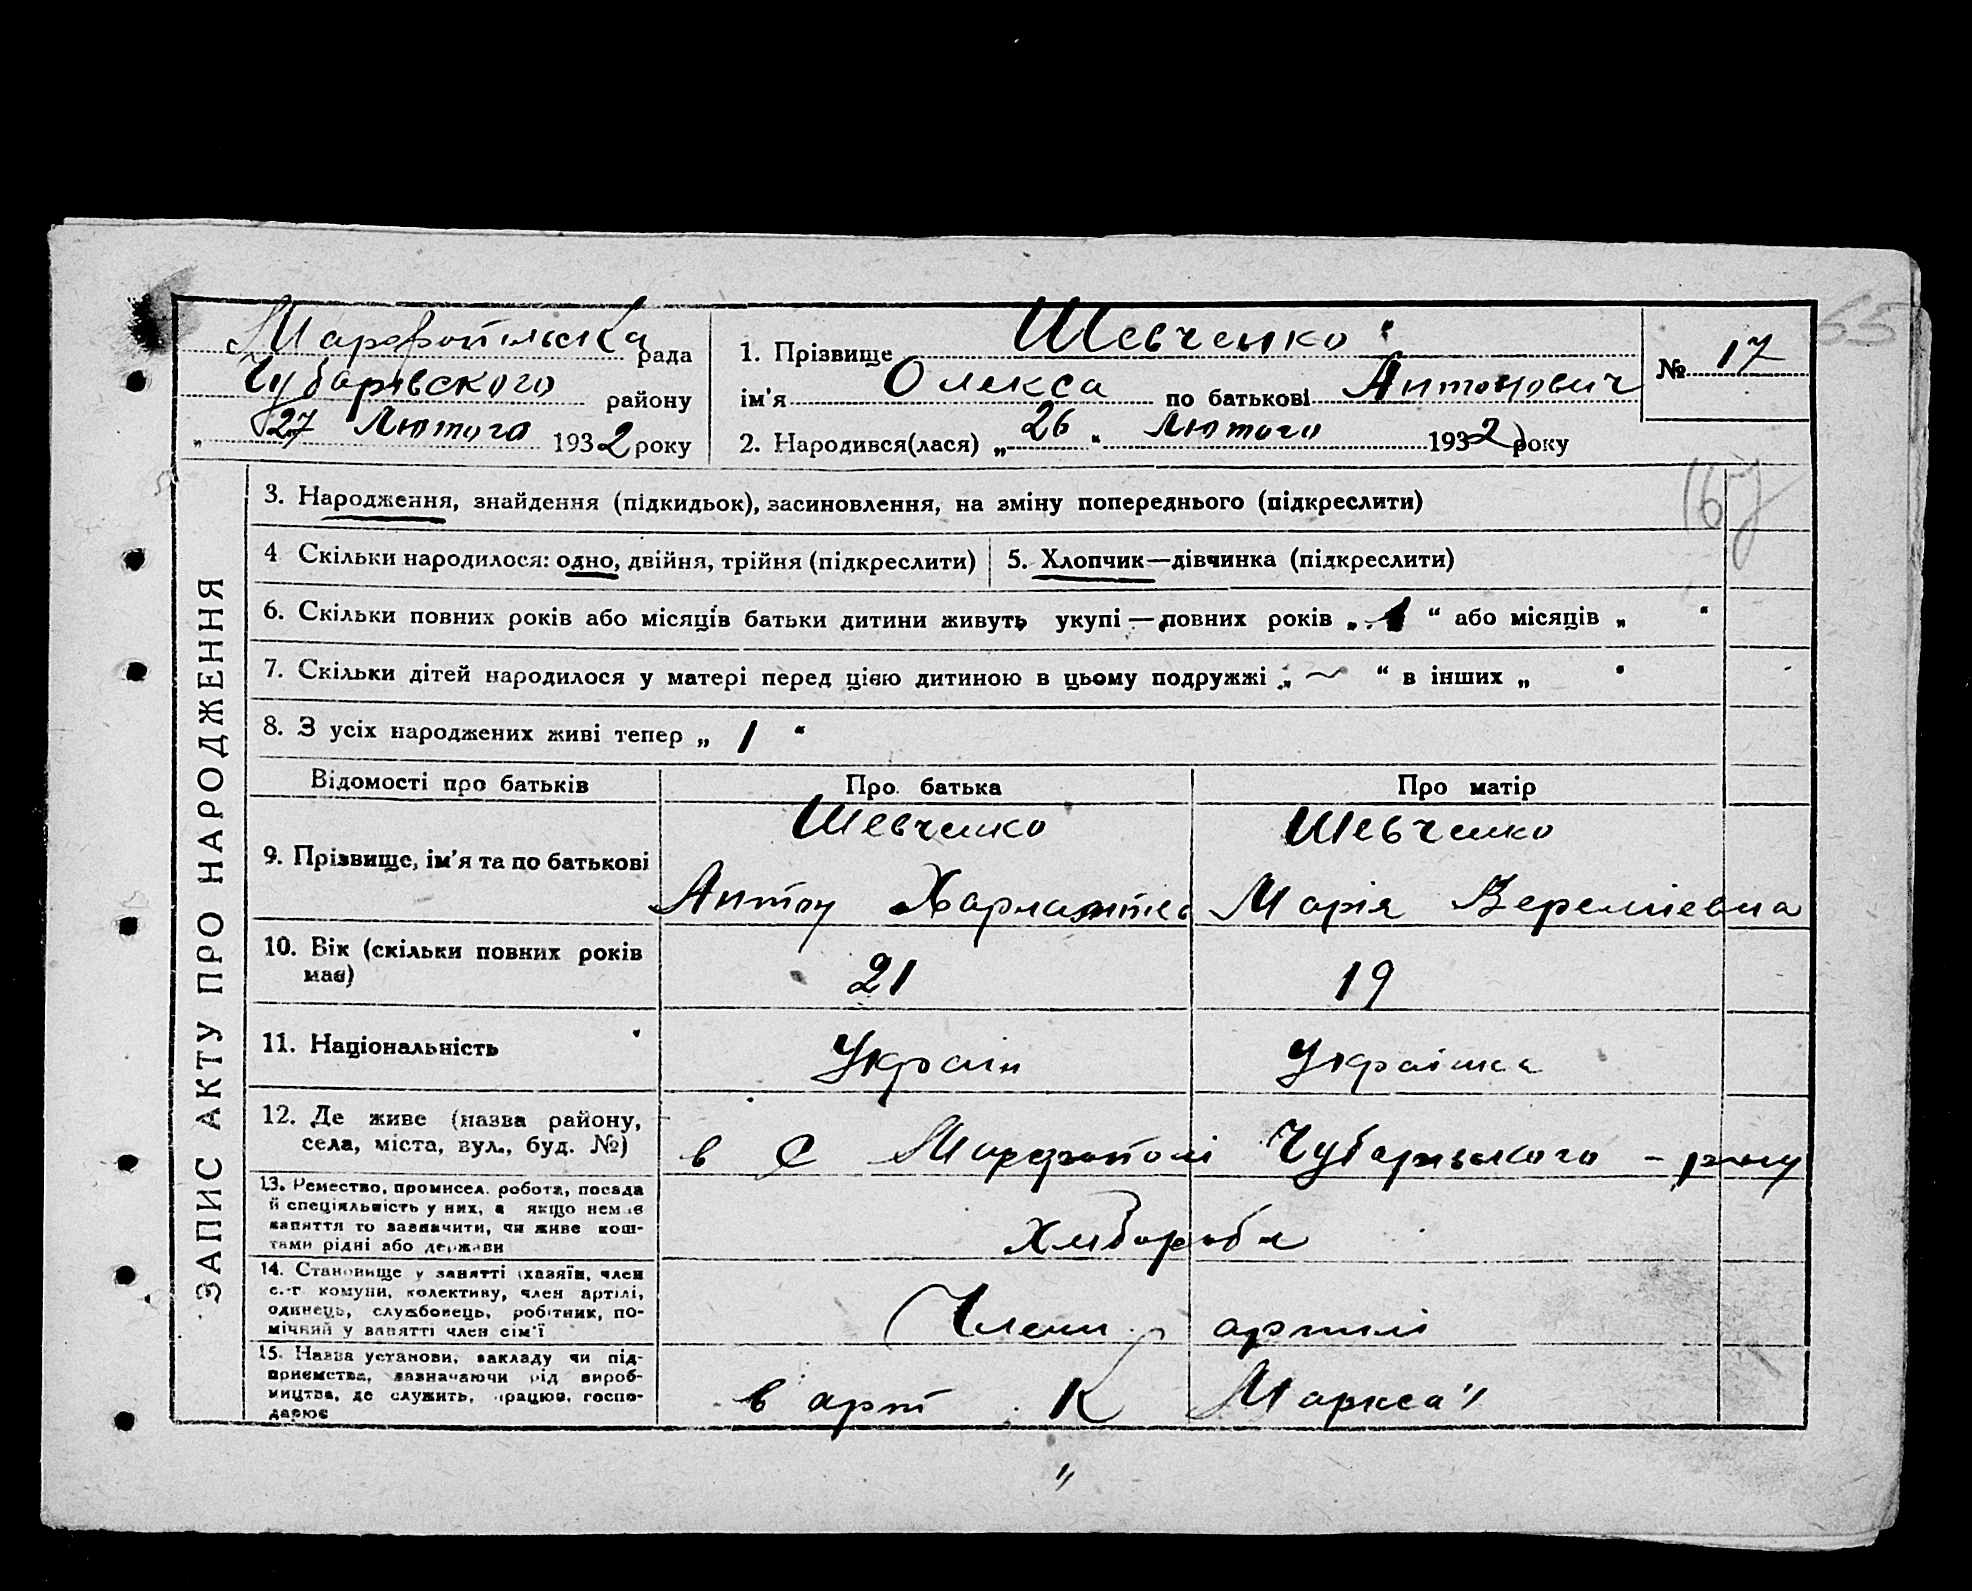 65
Марфопільська рада
Чубарівского району
„ 27 Лютого 1932 року
1. Прізвище Шевченко
ім'я Олекса по батькові Антонович
2. Народився(лася) „ 26 “ Лютого 1932 року
№ 17
167
ЗАПИС АКТУ ПРО НАРОДЖЕННЯ
3. Народження, знайдення (підкидьок), засиновлення, на зміну попереднього (підкреслити)
4 Скільки народилося: одно, двійня, трійня (підкреслити)
5. Хлопчик—дівчинка (підкреслити)
6. Скільки повних років або місяців батьки дитини живуть укупі — повних років „ 1 “ або місяців „ “
7. Скільки дітей народилося у матері перед цією дитиною в цьому подружжі „ ~ “ в інших „ “
8. З усіх народжених живі тепер „ 1 “
Відомості про батьків
Про батька
Про матір
9. Прізвище, ім'я та по батькові
Шевченко
Антон
Шевченко
Марія Веремієвна
10. Вік (скільки повних років
має)
21
19
11. Національність
Україн
Українка
12. Де живе (назва району,
села, міста, вул., буд. №)
в с Марфополі Чубарівського - р-ну
13. Ремество, промисел. робота, посада
й спеціяльність у них, а якщо немає
заняття то зазначити, чи живе кош-
тами рідні або держави
Хлібороби
14. Становище у занятті (хазяїн, член
с.-г. комуни, колективу, член артілі,
одинець, службовець, робітник, по-
мічний у занятті член сім'ї
Члени артілі
15. Назва установи, закладу чи під-
приємства, зазначаючи рід вироб-
ництва, де служить, працює, госпо-
дарює
в арт К Маркса"
"